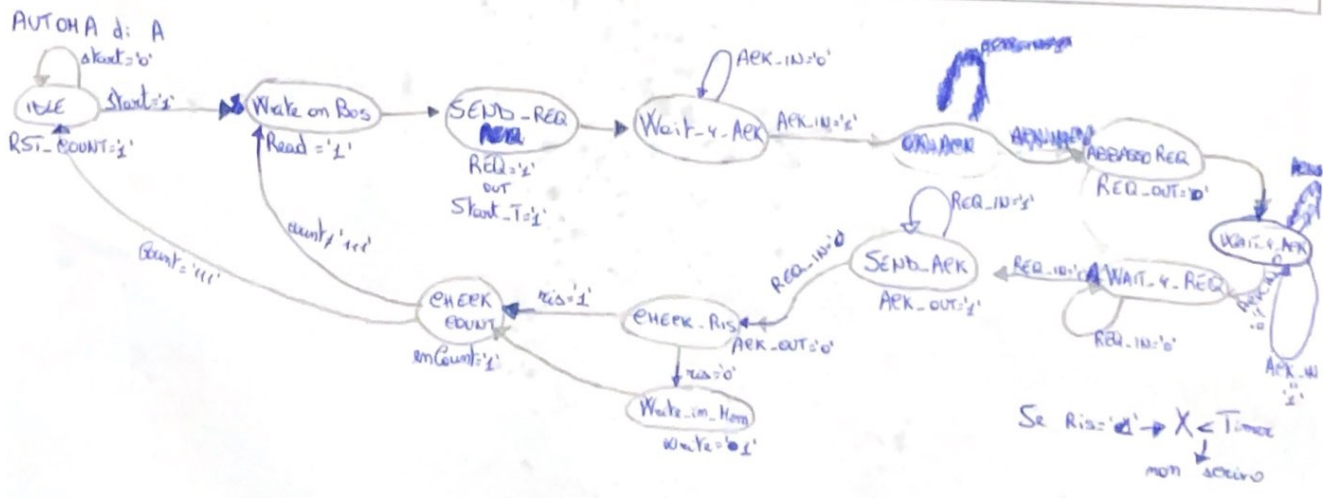 AUTOMA di A
start='0'
IDLE
RST_COUNT='1'
Start='1'
Write on Bus
Read='1'
SEND_REQ
REQ='1'
OUT
Start_T='1'
Wait_4_ACK
ACK_IN='0'
ACK_IN='1'
ABBASSO REQ
REQ_OUT='0'
WAIT_4_ACK
ACK_IN
'1'
WAIT_4_REQ
REQ_IN='0'
SEND_ACK
REQ_IN='1'
ACK_OUT='1'
REQ_IN='0'
CHECK_RIS
ACK_OUT='0'
ris='1'
ris='0'
Write_in_Mem
write='1'
CHECK
COUNT
enCount='1'
Count='111'
Se Ris='1' → X < Timer
non scrivo